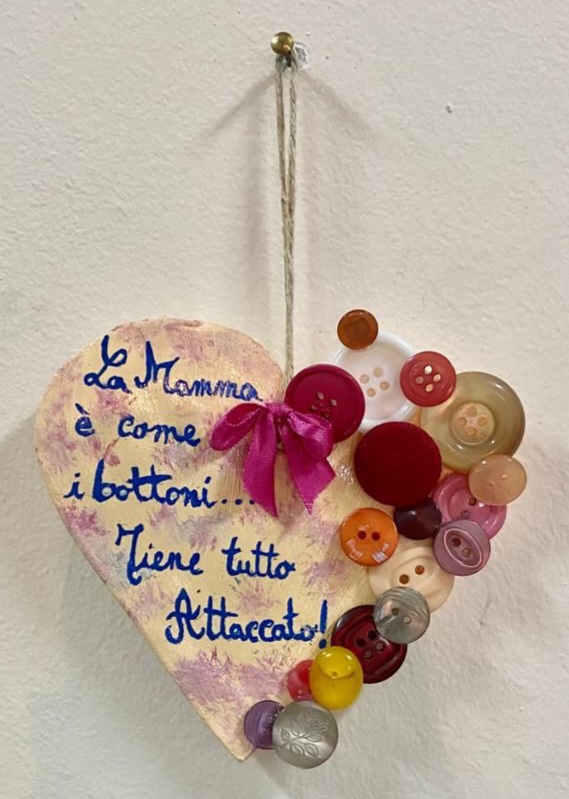 La Mamma
è come
i bottoni...
Tiene tutto
Attaccato!